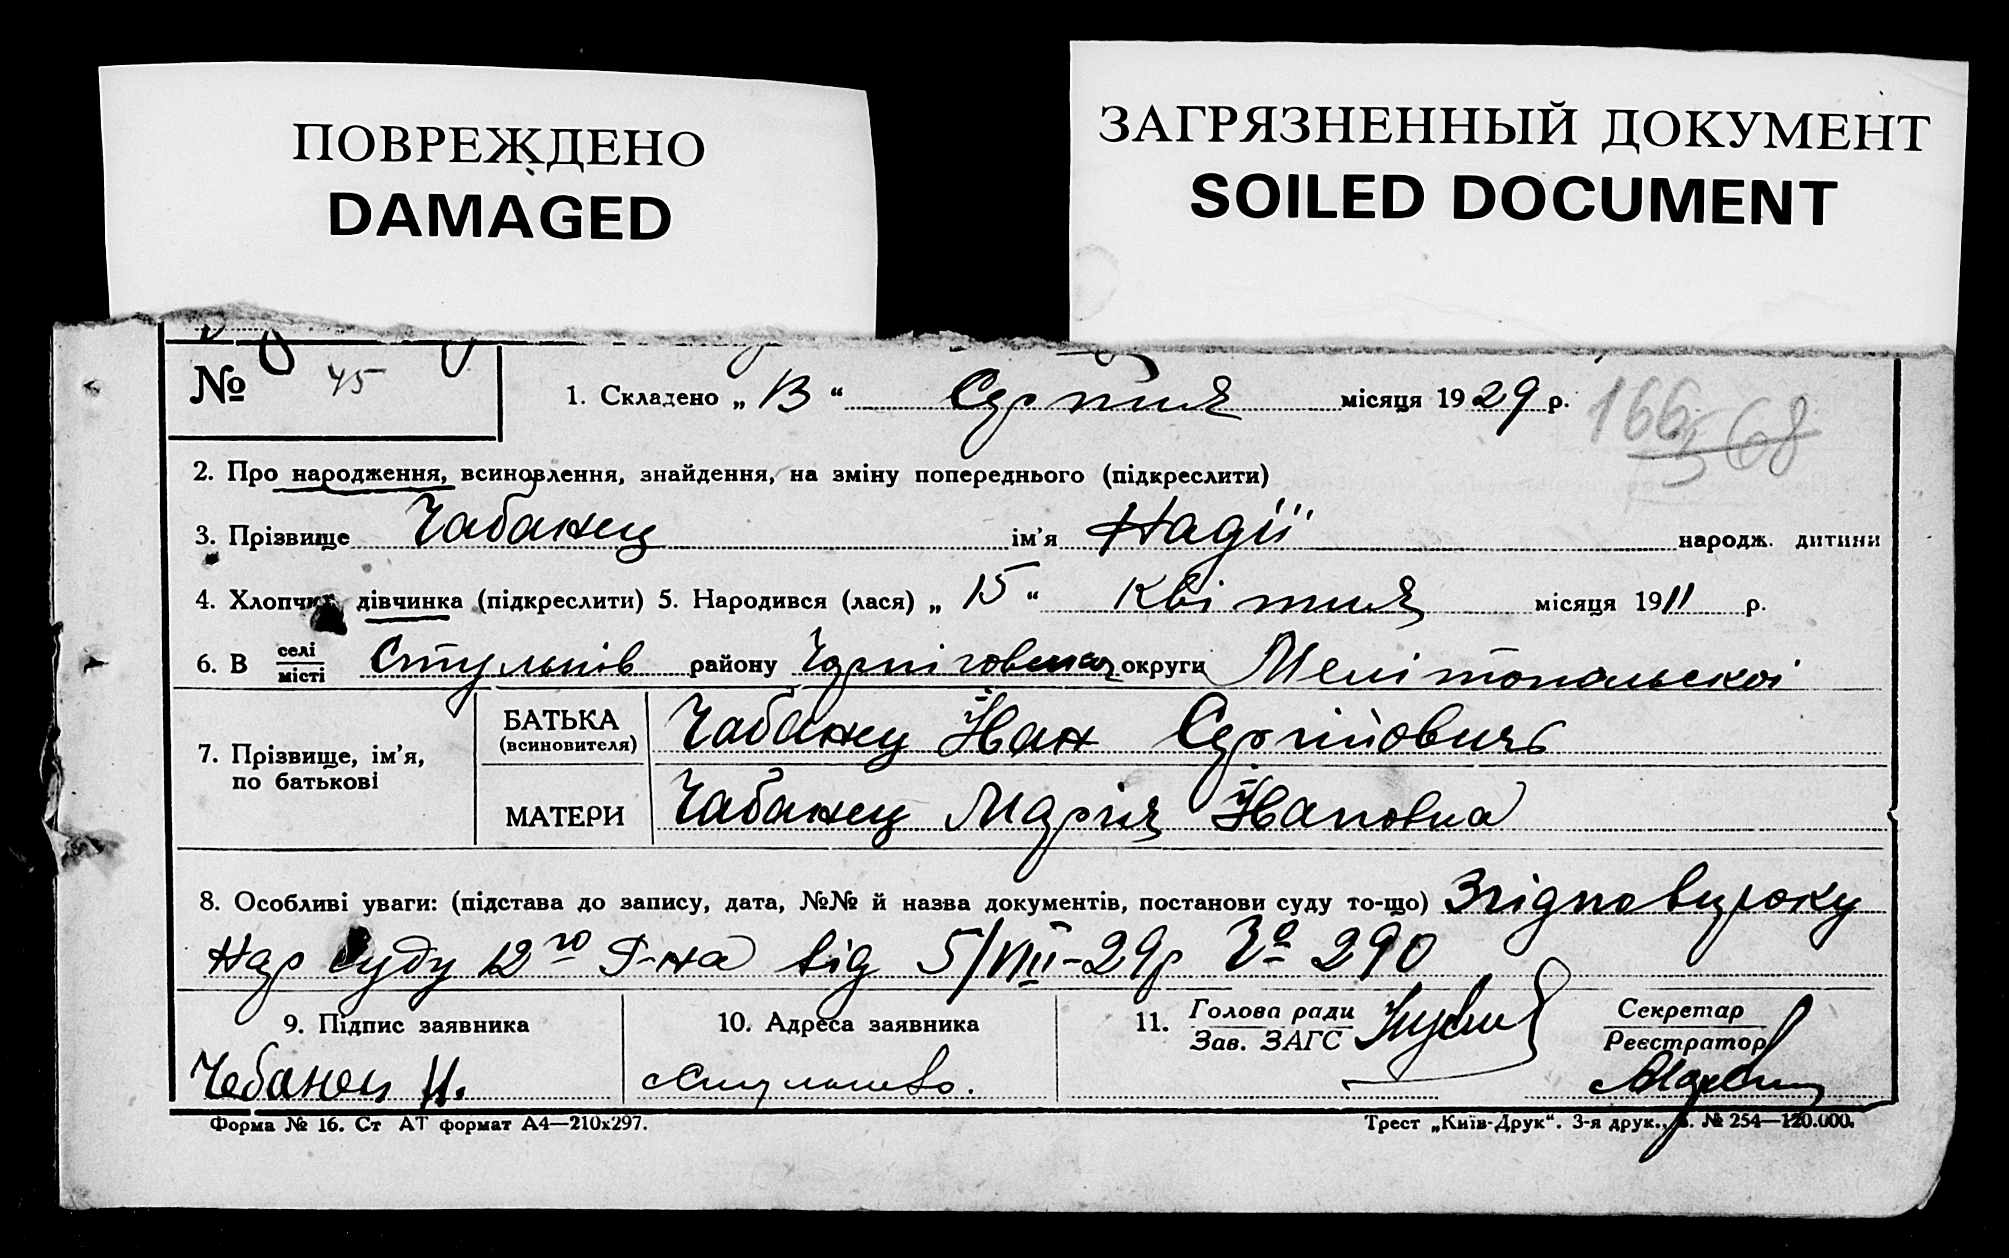 ПОВРЕЖДЕНО
DAMAGED
ЗАГРЯЗНЕННЫЙ ДОКУМЕНТ
SOILED DOCUMENT
№ 45
1. Складено „ 13 “ Серпня місяця 1929 р.
166 68
2. Про народження, всиновлення, знайдення, на зміну попереднього (підкреслити)
3. Прізвище Чабанец ім’я Надії народж. дитини
4. Хлопчик, дівчинка (підкреслити) 5. Народився (лася) „ 15 “ Квітня місяця 1911 р.
6. В селі місті Стульнів району Черніговськ округи Мелітопольскоі
7. Прізвище, ім’я, по батькові
БАТЬКА (всиновителя) Чабанец Йван Сергійовичь
МАТЕРИ Чабанец Марія Йвановна
8. Особливі уваги: (підстава до запису, дата, №№ й назва документів, постанови суду то-що) Згідно вироку
Нар Суду 12го Р-на від 5/VIII-29р За 290
9. Підпис заявника
Чебанец Н.
10. Адреса заявника
Стульнево.
11. Голова ради
Зав. ЗАГС
Секретар
Реєстратор
Форма № 16. Ст АТ формат А4—210х297.
Трест „Київ-Друк“. 3-я друк., З. № 254—120.000.